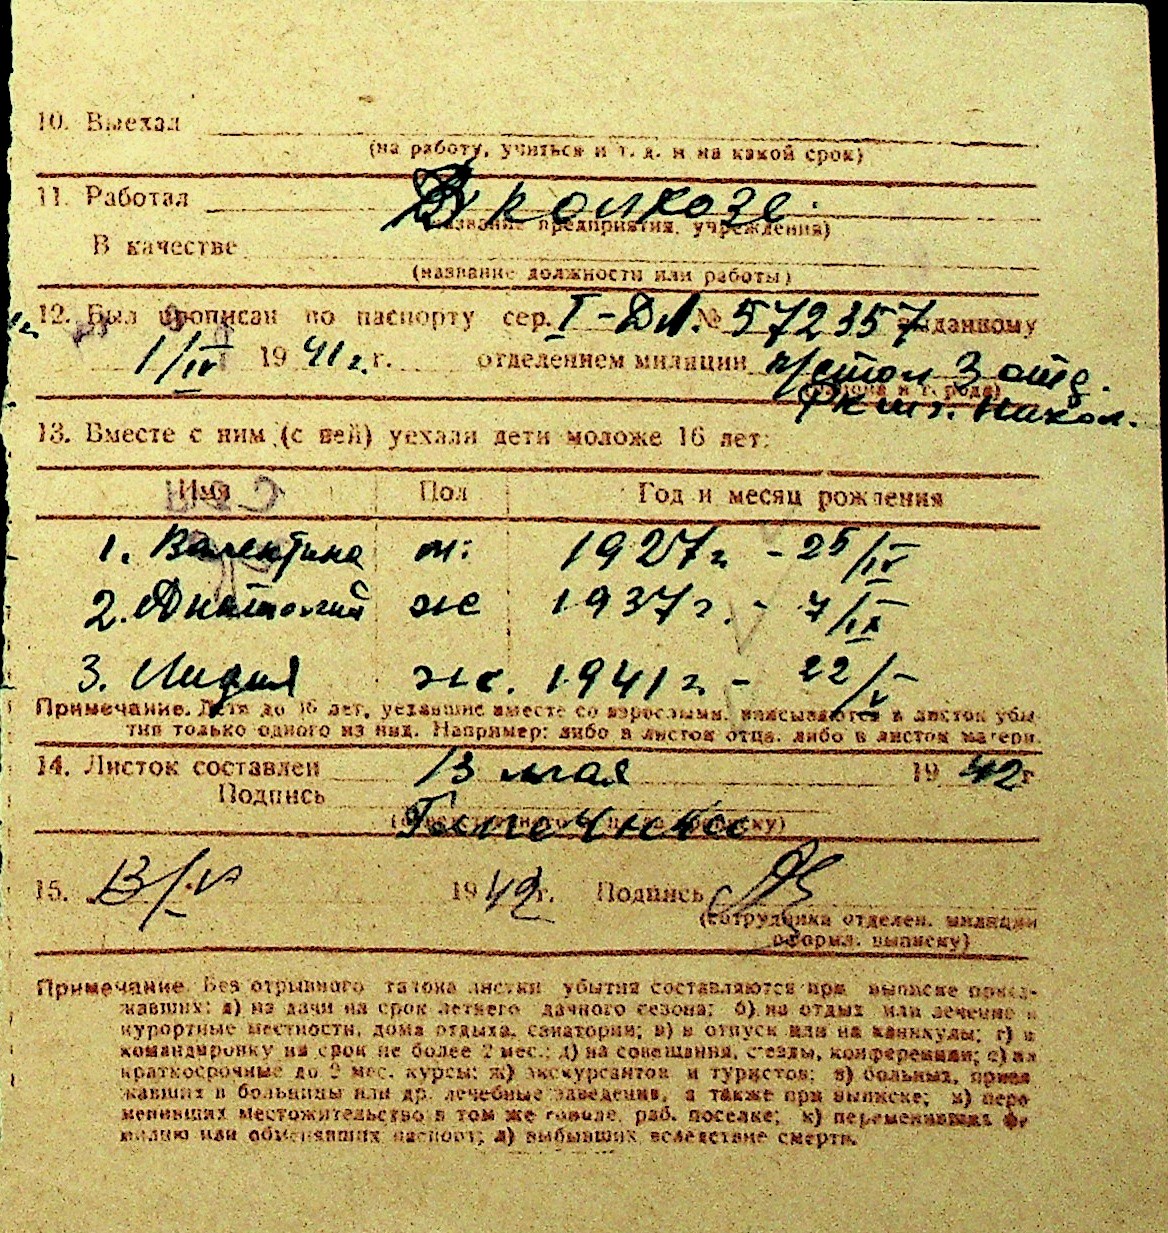 10. Выехал
(на работу, учиться и т. д. и на какой срок)
11. Работал В колхозе.
(название предприятия, учреждения)
В качестве
(название должности или работы)
12. Был прописан по паспорту сер. I-ДЛ. № 572357 выданному
1/IV 1941 г. отделением милиции 3 отд.
13. Вместе с ним (с ней) уехали дети моложе 16 лет:
Имя Пол Год и месяц рождения
1. Валентина м: 1927 г. - 25/IV
2. Анатолий ж 1937 г. - 7/IX
3. Лидия ж. 1941 г. - 22/V
Примечание. Дети до 16 лет, уехавшие вместе со взрослыми, вписываются в листок убы-
тия только одного из них. Например: либо в листок отца, либо в листок матери.
14. Листок составлен 13 мая 1942 г
Подпись
15. 1942 г. Подпись
(сотрудника отделен. милиции
оформл. выписку)
Примечание. Без отрывного талона листки убытия составляются при выписке приез-
жавших: а) на дачи на срок летнего дачного сезона; б) на отдых или лечение в
курортные местности, дома отдыха, санатории; в) в отпуск или на каникулы; г) в
командировку на срок не более 2 мес.; д) на совещания, съезды, конференции; е) на
краткосрочные до 2 мес. курсы; ж) экскурсантов и туристов; з) больных, приез
жавших в больницы или др. лечебные заведения, а также при выписке; и) пере
менивших местожительство в том же городе, раб. поселке; к) переменивших фа
милию или обменявших паспорт; л) выбывших вследствие смерти.